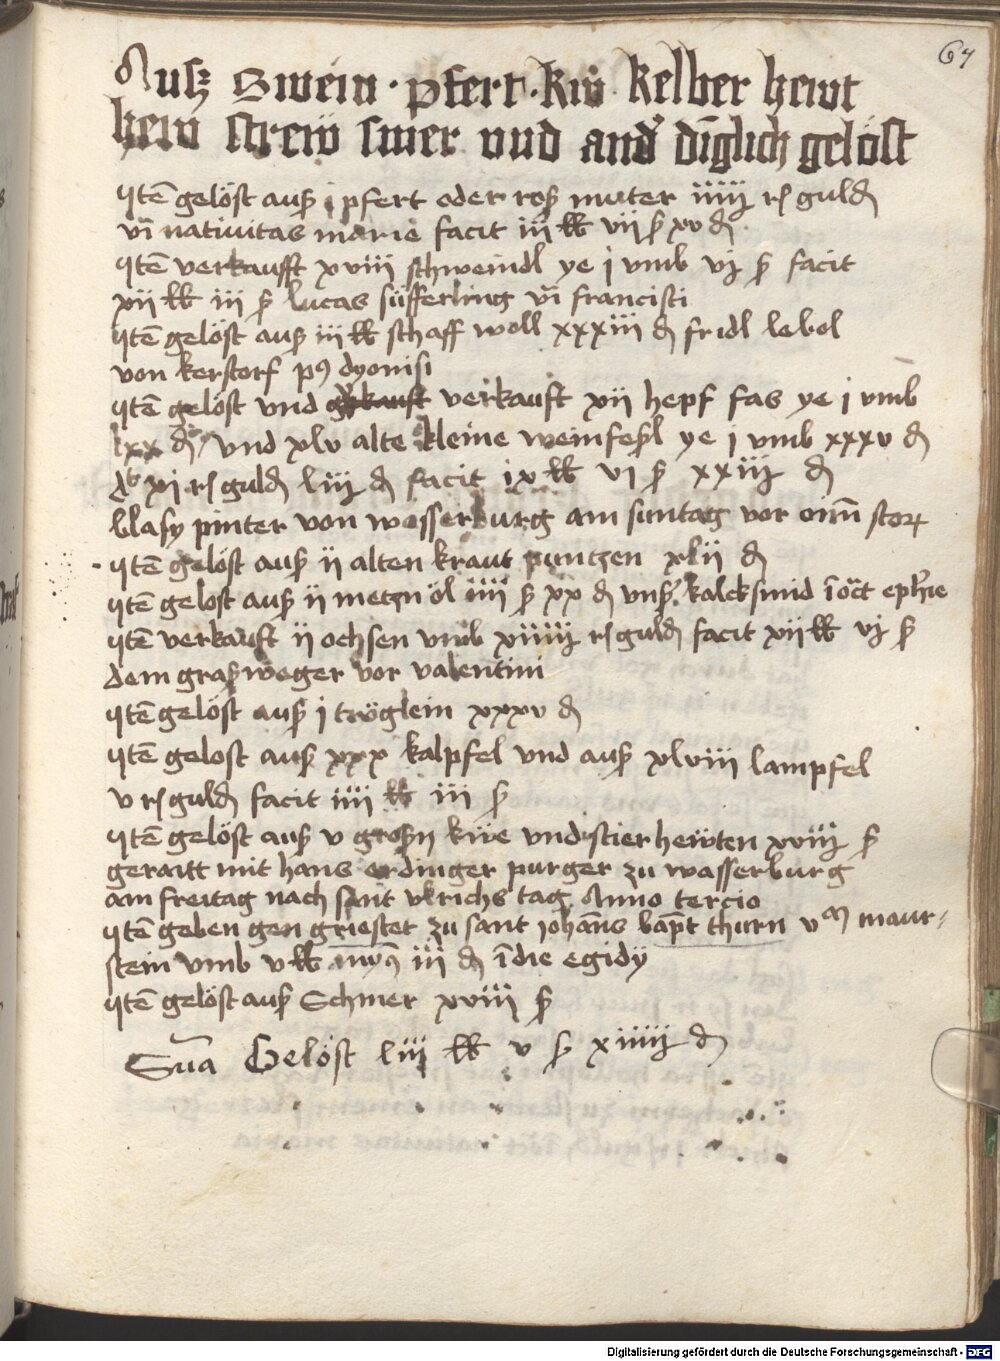 67
Ausz Swein · pfert · kw̓ kelber hewt
hew strew smer vnd and̓ dinglich gelöst
Itē gelöst auß i pfert oder roß muter iiij rh guldn̄
vī nativitas marie facit iij lb vij ß xv d
Itē verkaufft xviii schweindl ye j vmb vj ß facit
xij lb iii ß lucas süfferling vī francisci
Itē gelöst auß iij lb schaff woll xxxiij d fridl lebol
von kerstorf p9 dyonisi
Itē gelöst vnd verkauft xij hepf fas ye j vmb
lxx d vnd xlv alte kleine weinfeßl ye j vmb xxxv d
xj rh guldn̄ liij d facit ix lb vj ß xxiij d
blasy pinter von wasserburg am suntag vor oīm
Itē gelöst auß ij alten kraut puntzen xlij d
Itē gelost auß ij metzn öl iiij ß xx d vnß kalcksmid ī oct̄ epħie
Itē verkauft ij ochsen vmb xiiij rh guldn̄ facit xij lb vj ß
dem graßweger vor valentini
Itē gelöst auß j tröglein xxxv d
Itē gelost auß xxx kalpfel vnd auß xlviii lampfel
v rh guldn̄ facit iiij lb iii ß
Itē gelöst auß v großn küe vnd stier hewten xviij ß
geraitt mit hans erdinger purger zu wasserburg
am freitag nach sant vlrichs tag Anno tercio
Itē geben gen griestet zu sant iohān̄s bapt̄ thurn v m maur-
stein vmb v lb minus iij d ī die egidy
Itē gelöst auß Schmer xviij ß
Sūa Gelöst liij lb v ß xiiij d
Digitalisierung gefördert durch die Deutsche Forschungsgemeinschaft - DFG